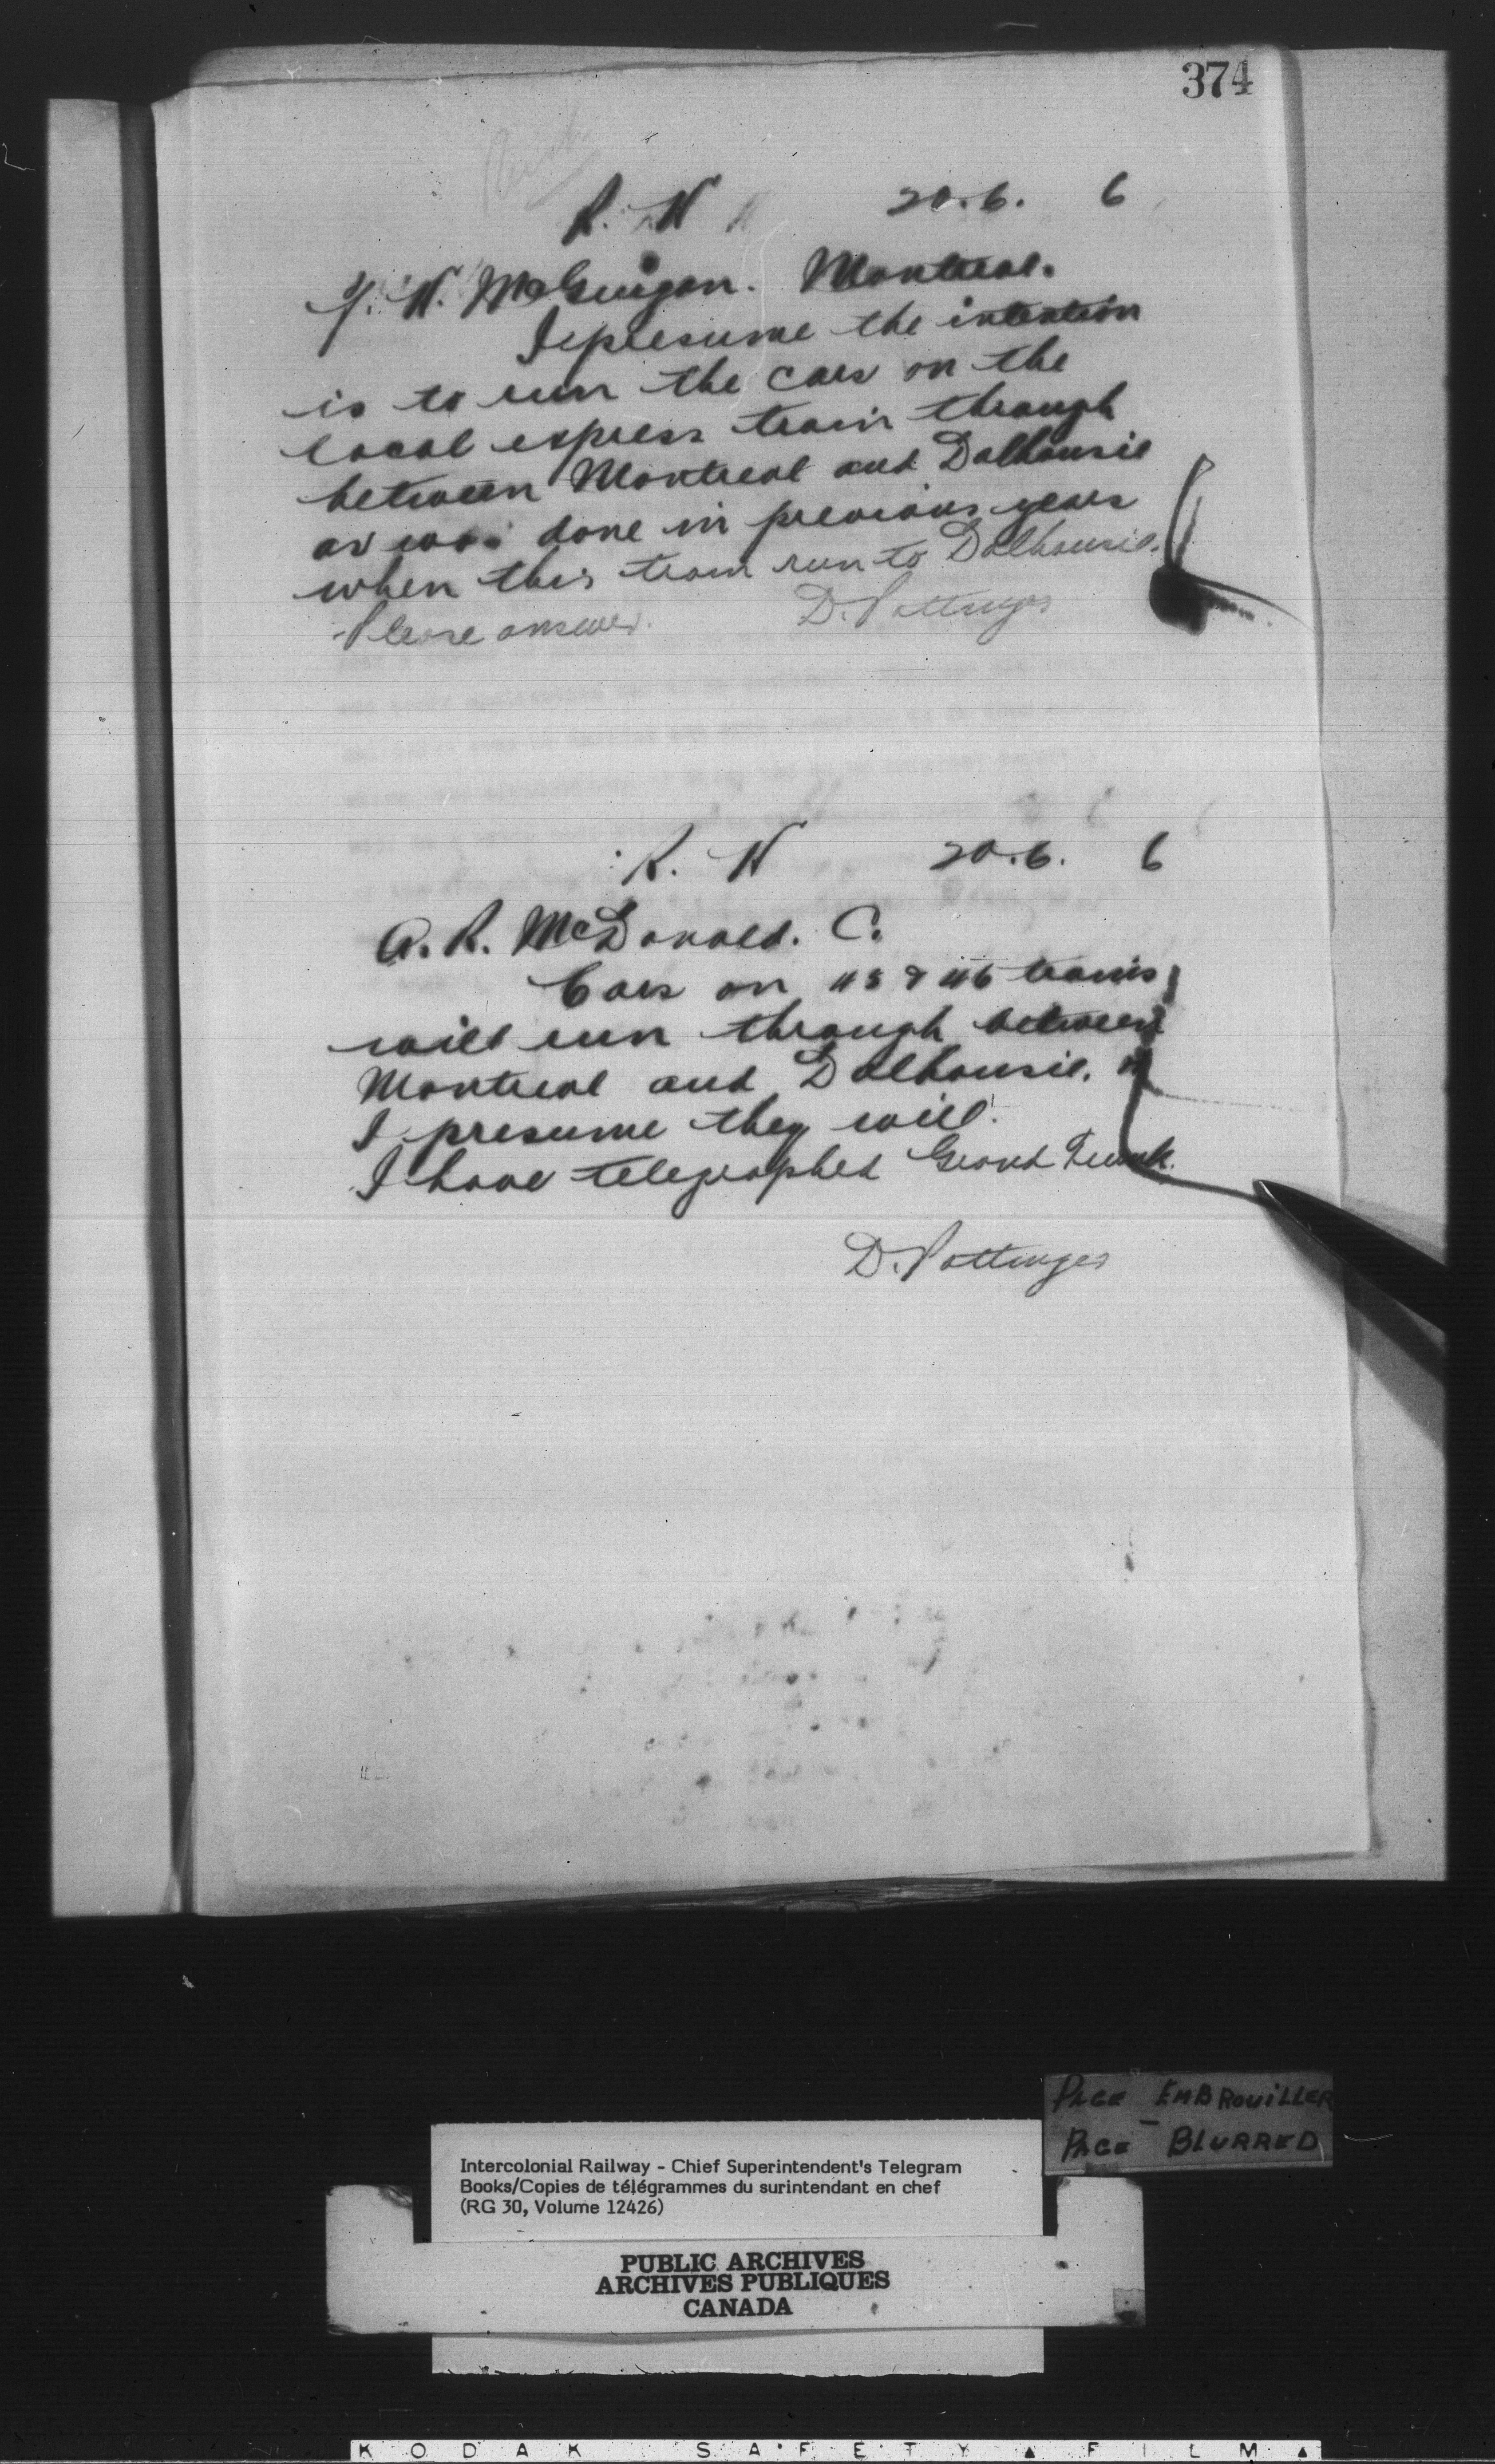 374
R. N 20.6. 6
F. H. McGuigan. Montreal.
I presume the intention
is to run the cars on the
local express train through
between Montreal and Dalhousie
as was done in previous years
when this train run to Dalhousie.
Please answer. D. Pottinger
R. N 20.6. 6
A. R. McDonald. C.
Cars on & trains
will run through between
Montreal and Dalhousie.
I presume they will.
I have telegraphed Grand Trunk.
D. Pottinger
PAGE EMBROUILLER
PAGE - BLURRED
Intercolonial Railway - Chief Superintendent's Telegram
Books/Copies de télégrammes du surintendant en chef
(RG 30, Volume 12426)
PUBLIC ARCHIVES
ARCHIVES PUBLIQUES
CANADA
KODAK SAFETY ▲ FILM ▲